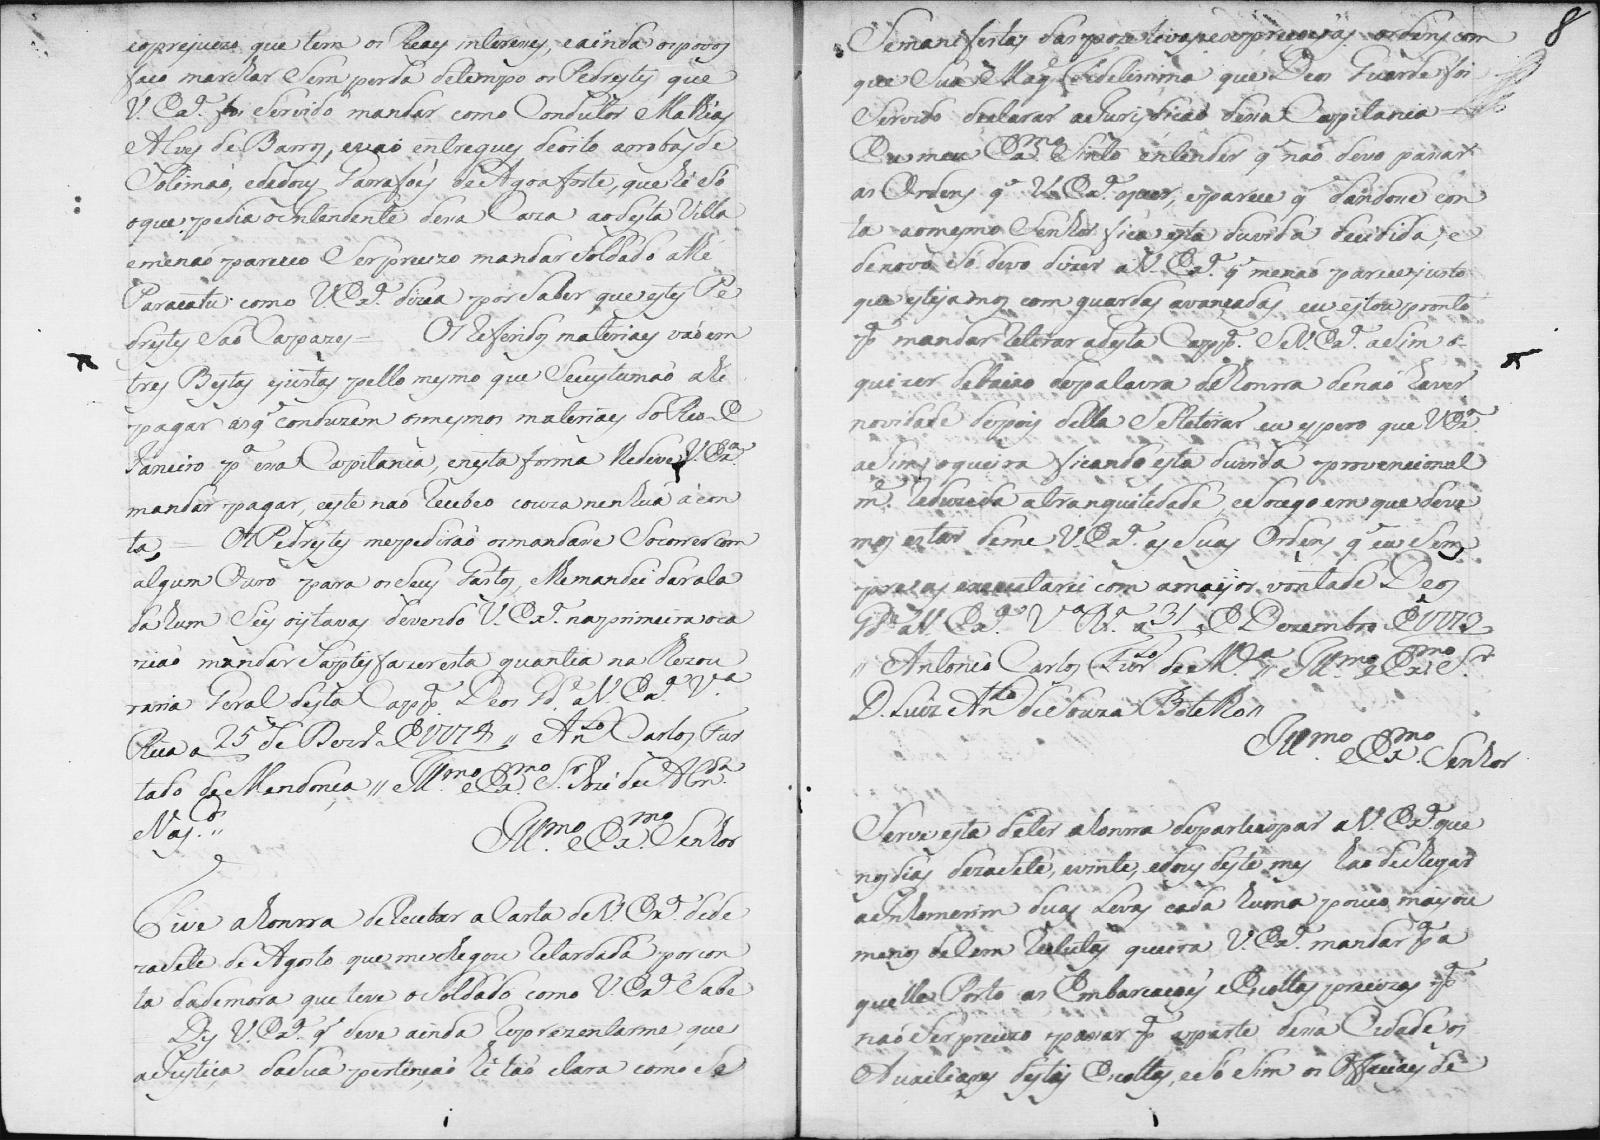 eo prejuezo, que tem os Reaes interesses, e ainda os povos
faço marchar sem perda de tempo os Pedrestes que
V. Exª. foi servido mandar como Condutor Mathias
Alves de Barros, e vaõ entregues de oito arrobas de
Solimaõ, e de dous Garrafoẽs de Agoa forte, que hé só
o que pedia o Intendente desa Caza ao desta Villa
e me naõ pareceo ser precizo mandar soldado athé
Paracatu como V. Exª. dizia por saber que estes Pe
drestes saõ Capazes = Os referidos materiaes vaõ em
tres Bestas ejustas pello mesmo que se custumaõ a hi
pagar as q̃ conduzem os mesmos materiaes do Rio de
Janeiro pª esa Capitania, e nesta forma se deve V. Exª.
mandar pagar, e este naõ recebeo couza nenhuã á con
ta, = Os Pedrestes me pediraõ os mandase socorrer com
algum Ouro para os seus Gastos, e lhe mandei dar a ca
da hum seis oitavas devendo V. Exª. na primeira oca
ziaõ mandar satisfazer esta quantia na Thezou
raria Geral desta Capp. Deos Gde. a V. Exª. Vª
Rica a 25 de Dezrº. de 1773 // Antº Carlos Fur
tado de Mendonça // Illmo. e Exmo. Sr. Jozé de Almda
Vas.cos //
Illmo. e Exmo. Senhor
Tive a honrra de receber a Carta de V. Exª. de de
zasete de Agosto que me chegou retardada por con
ta da demora que teve o soldado como V. Exª. sabe
Diz V. Exª. q̃ deve ainda reprezentarme, que
a Justiça da sua pertençaõ hé taõ clara como se
8
se manifesta das pozetivas e expreças ordens com
que Sua Magᵉ Fidelissima que Deos Guarde foi
servido declarar a Jurisdicaõ desa Capitania =
Eu meu Exmo. Sinto entender q̃ naõ devo pasar
as Ordens q̃ V. Exª. quer, e parece q̃ dandose con
ta ao mesmo Senhor fica esta duvida decidida, e
de novo só devo dizer a V. Exª. q̃ me naõ parece justo
que estejamos com guardas avançadas, eu estou pronto
pª mandar retirar a desta Capp. Se V. Exª. asim o
quizer debaixo da palavra de honrra de naõ haver
novidade depois della se retirar eu espero que V. Exª.
asim o queira ficando esta duvida provencional
mᵉ. reduzida a tranquilidade, e socego em que deve
mos estar deme V. Exª. as suas Ordens q̃ eu sem
pre as executarei com a maijor vontade Deos
Gde. a V. Exª. Vª Rª. a 31 de Dezembro de 1773
// Antonio Carlos Furdo de Mça // Illmo. e Exmo. Sr
D. Luiz Anto de Souza Botelho //
Illmo. e Exmo. Senhor
Serve esta de ter a honrra de participar a V. Exª. que
nos dias dezasete, e vinte, e dous deste mes haõ de chegar
a Inhomerim duas Levas cada huma pouco mais ou
menos de cem recrutas queira V. Exª. mandar pª a
quelle Porto as Embarcacoẽs e Escoltas precizas pª
naõ ser precizo pasar pª a parte desa Cidade os
Auxiliares destas Escoltas, e só sim os Officiaes de